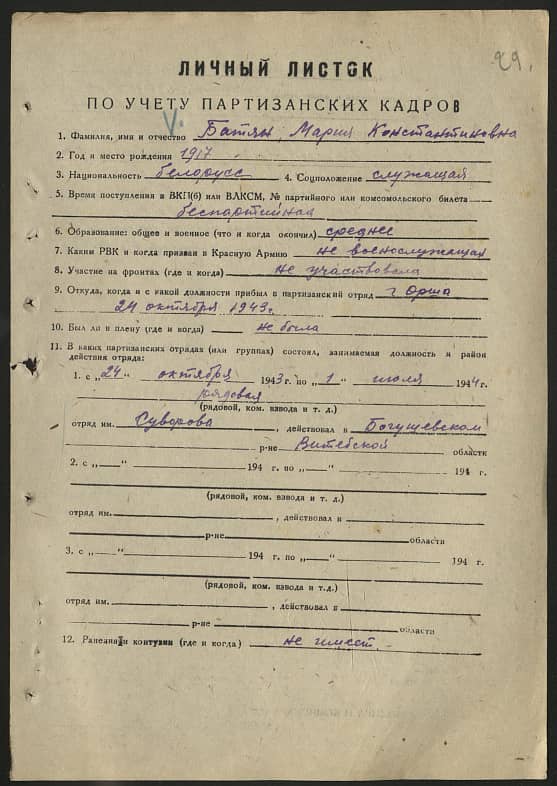 29.
ЛИЧНЫЙ ЛИСТОК
ПО УЧЕТУ ПАРТИЗАНСКИХ КАДРОВ
V
1. Фамилия, имя и отчество Батян, Мария Константиновна
2. Год и место рождения 1917
3. Национальность белорусс 4. Соцположение служащая
5. Время поступления в ВКП(б) или ВЛКСМ, № партийного или комсомольского билета
беспартийная
6. Образование: общее и военное (что и когда окончил) среднее
7. Каким РВК и когда призван в Красную Армию не военослужащая
8. Участие на фронтах (где и когда) не участвовала
9. Откуда, когда и с какой должности прибыл в партизанский отряд г Орша
24 октября 1943г.
10. Был ли в плену (где и когда) не была
11. В каких партизанских отрядах (или группах) состоял, занимаемая должность и район
действия отряда:
1. с „24" октября 1943 г. по „1" июля 1944 г.
рядовая
(рядовой, ком. взвода и т. д.)
отряд им. Суворова, действовал в Богушевском
р-не Витебской области
2. с „—" 194 г. по „—" 194 г.
(рядовой, ком. взвода и т. д.)
отряд им. , действовал в
р-не области
3. с „—" 194 г. по „—" 194 г.
(рядовой, ком. взвода и т.д.)
отряд им. , действовал в
р-не области
12. Ранения и контузии (где и когда) не имеет